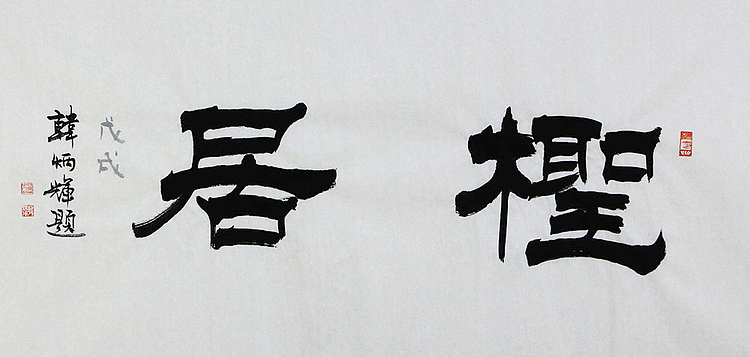 檉居
戊戌
韓炳輝題